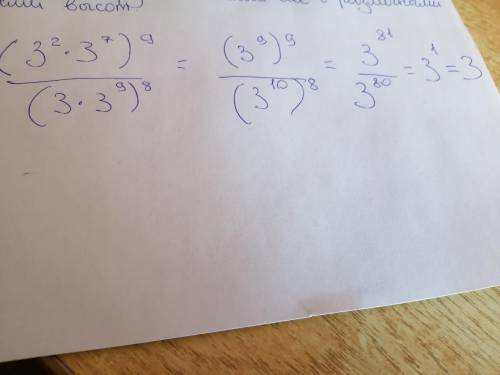 высот
(3²·3⁷)⁹ / (3·3⁹)⁸ = (3⁹)⁹ / (3¹⁰)⁸ = 3⁸¹ / 3⁸⁰ = 3¹ = 3